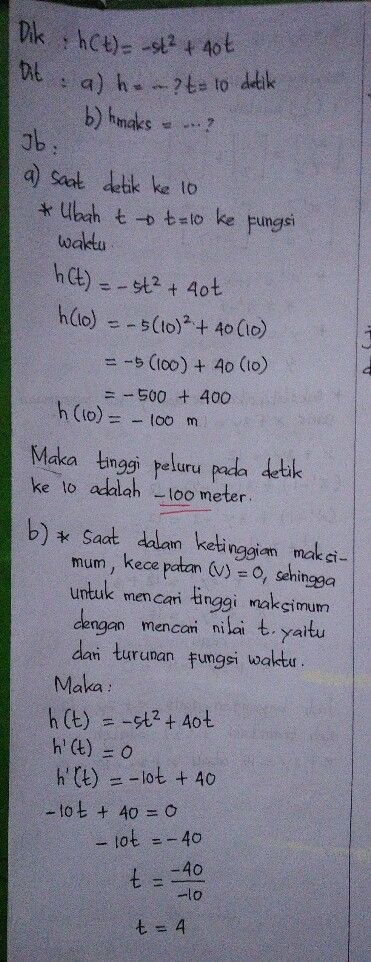 Dik : h(t) = -5t² + 40t
Dit : a) h = ... ? t = 10 detik
b) hmaks = ... ?
Jb :
a) Saat detik ke 10
* Ubah t → t=10 ke fungsi
waktu.
h(t) = -5t² + 40t
h(10) = -5(10)² + 40(10)
= -5(100) + 40(10)
= -500 + 400
h(10) = -100 m
Maka tinggi peluru pada detik
ke 10 adalah -100 meter.
b) * Saat dalam ketinggian maksi-
mum, kecepatan (V) = 0, sehingga
untuk mencari tinggi maksimum
dengan mencari nilai t. yaitu
dari turunan fungsi waktu.
Maka :
h(t) = -5t² + 40t
h'(t) = 0
h'(t) = -10t + 40
-10t + 40 = 0
-10t = -40
t = -40/-10
t = 4